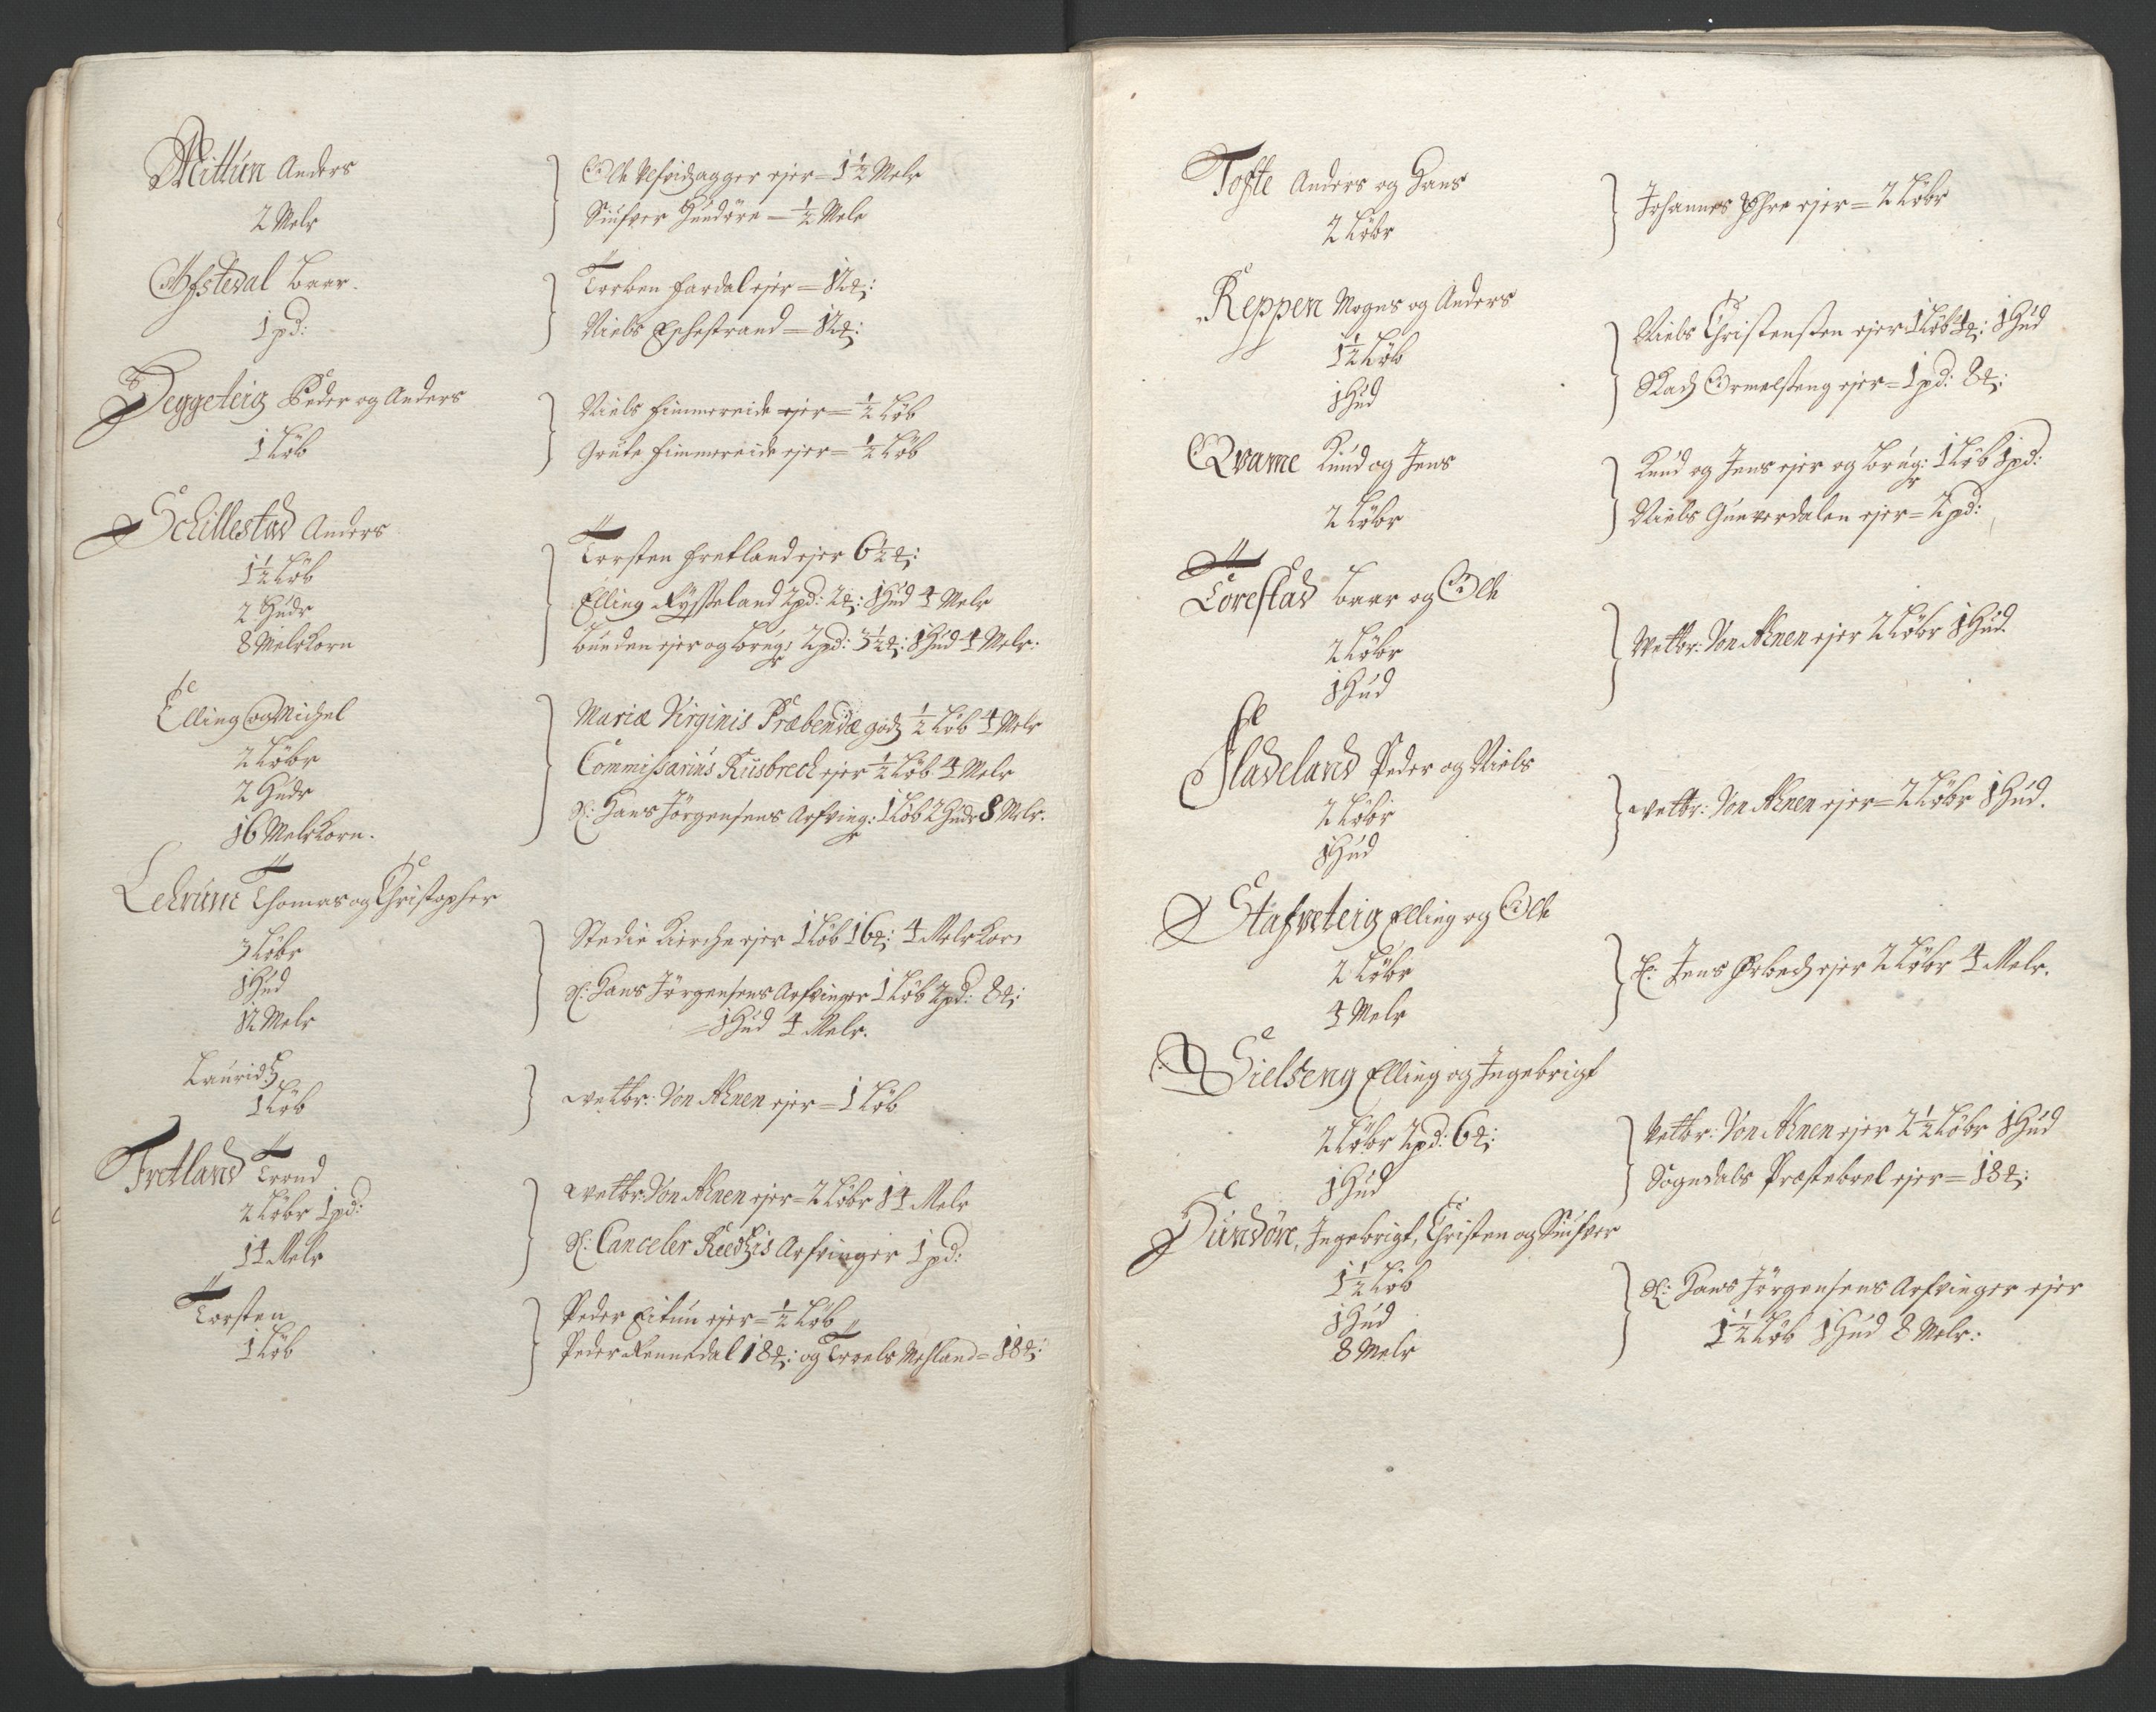 Mittun Anders
2 Meler
Ole Ulfvidzagger ejer = 1½ Meler
Siufver Hundöre = ½ Mele
Ofstedal Baar.
1 pd:
Torben Fardal ejer = 12 ℔:
Niels Eschestrand = 12 ℔:
Heggeteig Peder og Anders
1 Löb
Niels Fimmereide ejer = ½ Löb
Grute Fimmereide ejer = ½ Löb
Schillestad Anders
1½ Löb
2 Huder
8 Meler Korn
Torsten Fretland ejer 6½ ℔:
Elling Rysseland 2 pd: 2 ℔: 1 Hud 4 Meler
Bunden ejer og brug: 2 pd: 3½ ℔: 1 Hud 4 Meler:
Elling og Michel
2 Löber
2 Huder
16 Meler Korn.
Mariæ Virginis Præbendæ godz ½ Löb 4 Meler
Commissarius Rusbrech ejer ½ Löb 4 Meler
Sl: Hans Jörgensens Arfving: 1 Löb 2 Huder 8 Meler.
Lechrum Thomas og Christopher
3 Löber
1 Hud
12 Meler
Stedie Kierche ejer 1 Löb 16 ℔: 4 Meler Korn
Sl: Hans Jörgensens Arfvinger 1 Löb 2 pd: 8 ℔:
= 1 Hud 4 Meler.
Lauridz
1 Löb
Wetbr: Von Ahnen ejer = 1 Löb
Fretland Trond
2 Löber 1 pd:
14 Meler
Wetbr: Von Ahnen ejer = 2 Löber 14 Meler
Sl: Canceler Reedtzis Arfvinger 1 pd:
Torsten
1 Löb
Peder Eitun ejer = ½ Löb
Peder Rennedal 18 ℔: og Troels Mesland = 18 ℔:
Tofte Anders og Hans
2 Löber
Johannes Öhre ejer = 2 Löber
Reppen Mogens og Anders
1½ Löb
1 Hud
Niels Christensten ejer 1 Löb 4 ℔: 1 Hud
Madz Ormelsteng ejer = 1 pd: 8 ℔:
Qvame Knud og Jens
2 Löber
Knud og Jens ejer og brug: 1 Löb 1 pd:
Niels Gunverdalen ejer = 2 pd:
Torestad Baar og Ole
2 Löber
1 Hud
Wetbr: Von Ahnen ejer 2 Löber 1 Hud.
Fladeland Peder og Niels
2 Löber
1 Hud
Wetbr: Von Ahnen ejer = 2 Löber 1 Hud.
Stafveteig Elling og Ole
2 Löber
4 Meler
Hr: Jens Ørbech ejer 2 Löber 4 Meler.
Sielseng Elling og Ingebrigt
2 Löber 2 pd: 6 ℔:
1 Hud
Wetbr: Von Ahnen ejer 2½ Löber 1 Hud
Sogndals Præstebrel ejer = 18 ℔:
Hundöre, Ingebrigt, Christen og Siufver
1½ Löb
1 Hud
8 Meler
Sl: Hans Jörgensens Arfvinger ejer
1½ Löb 1 Hud 8 Meler: